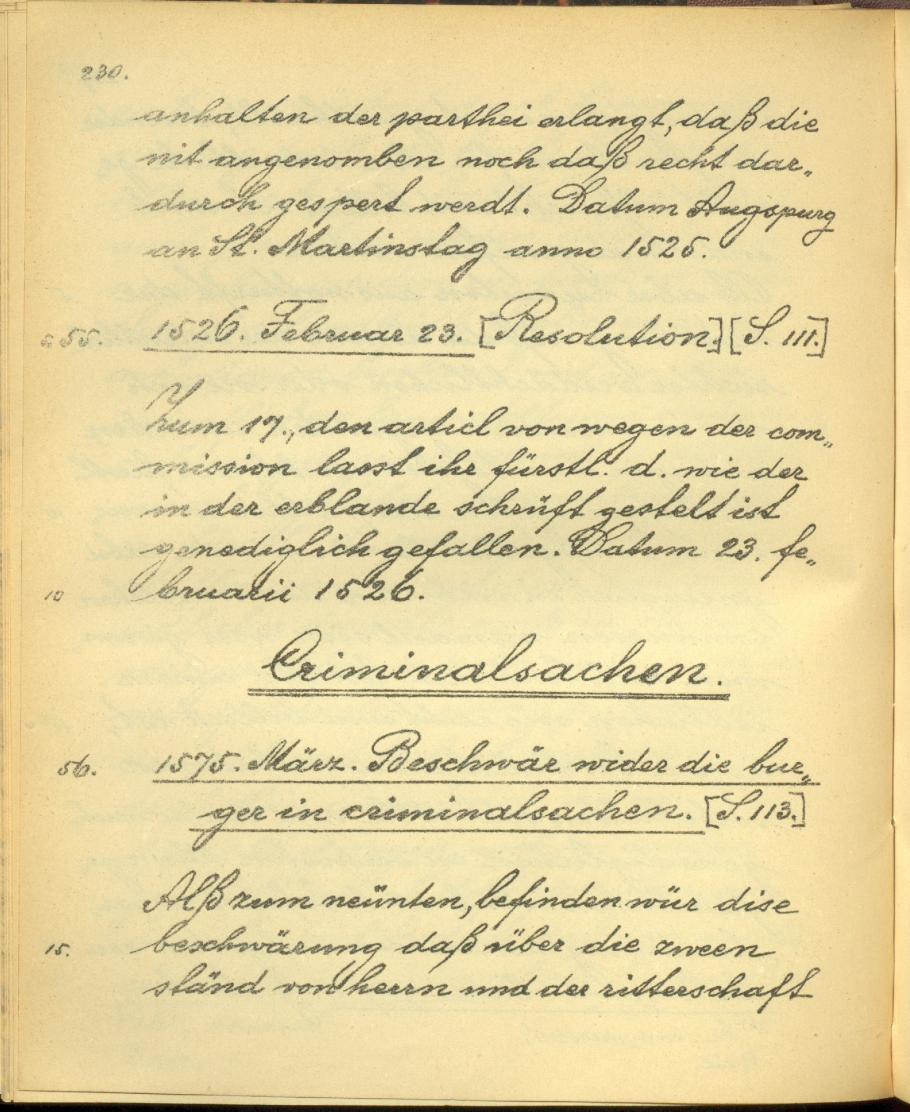 230.
anhalten der parthei erlangt, daß die
nit angenomben noch daß recht dar„
durch gespert werdt. Datum Augspurg
an St. Martinstag anno 1525.
55. 1526. Februar 23. [Resolution.] [S. 111.]
Zum 17., den articl von wegen der com„
mission lasst ihr fürstl. d. wie der
in der erblande schrüft gestelt ist
genediglich gefallen. Datum 23. fe„
10 bruarii 1526.
Criminalsachen.
56. 1575. März. Beschwär wider die bur„
ger in criminalsachen. [S. 113.]
Alß zum neünten, befinden wür dise
15. beschwärung daß über die zween
ständ von herrn und der ritterschaft